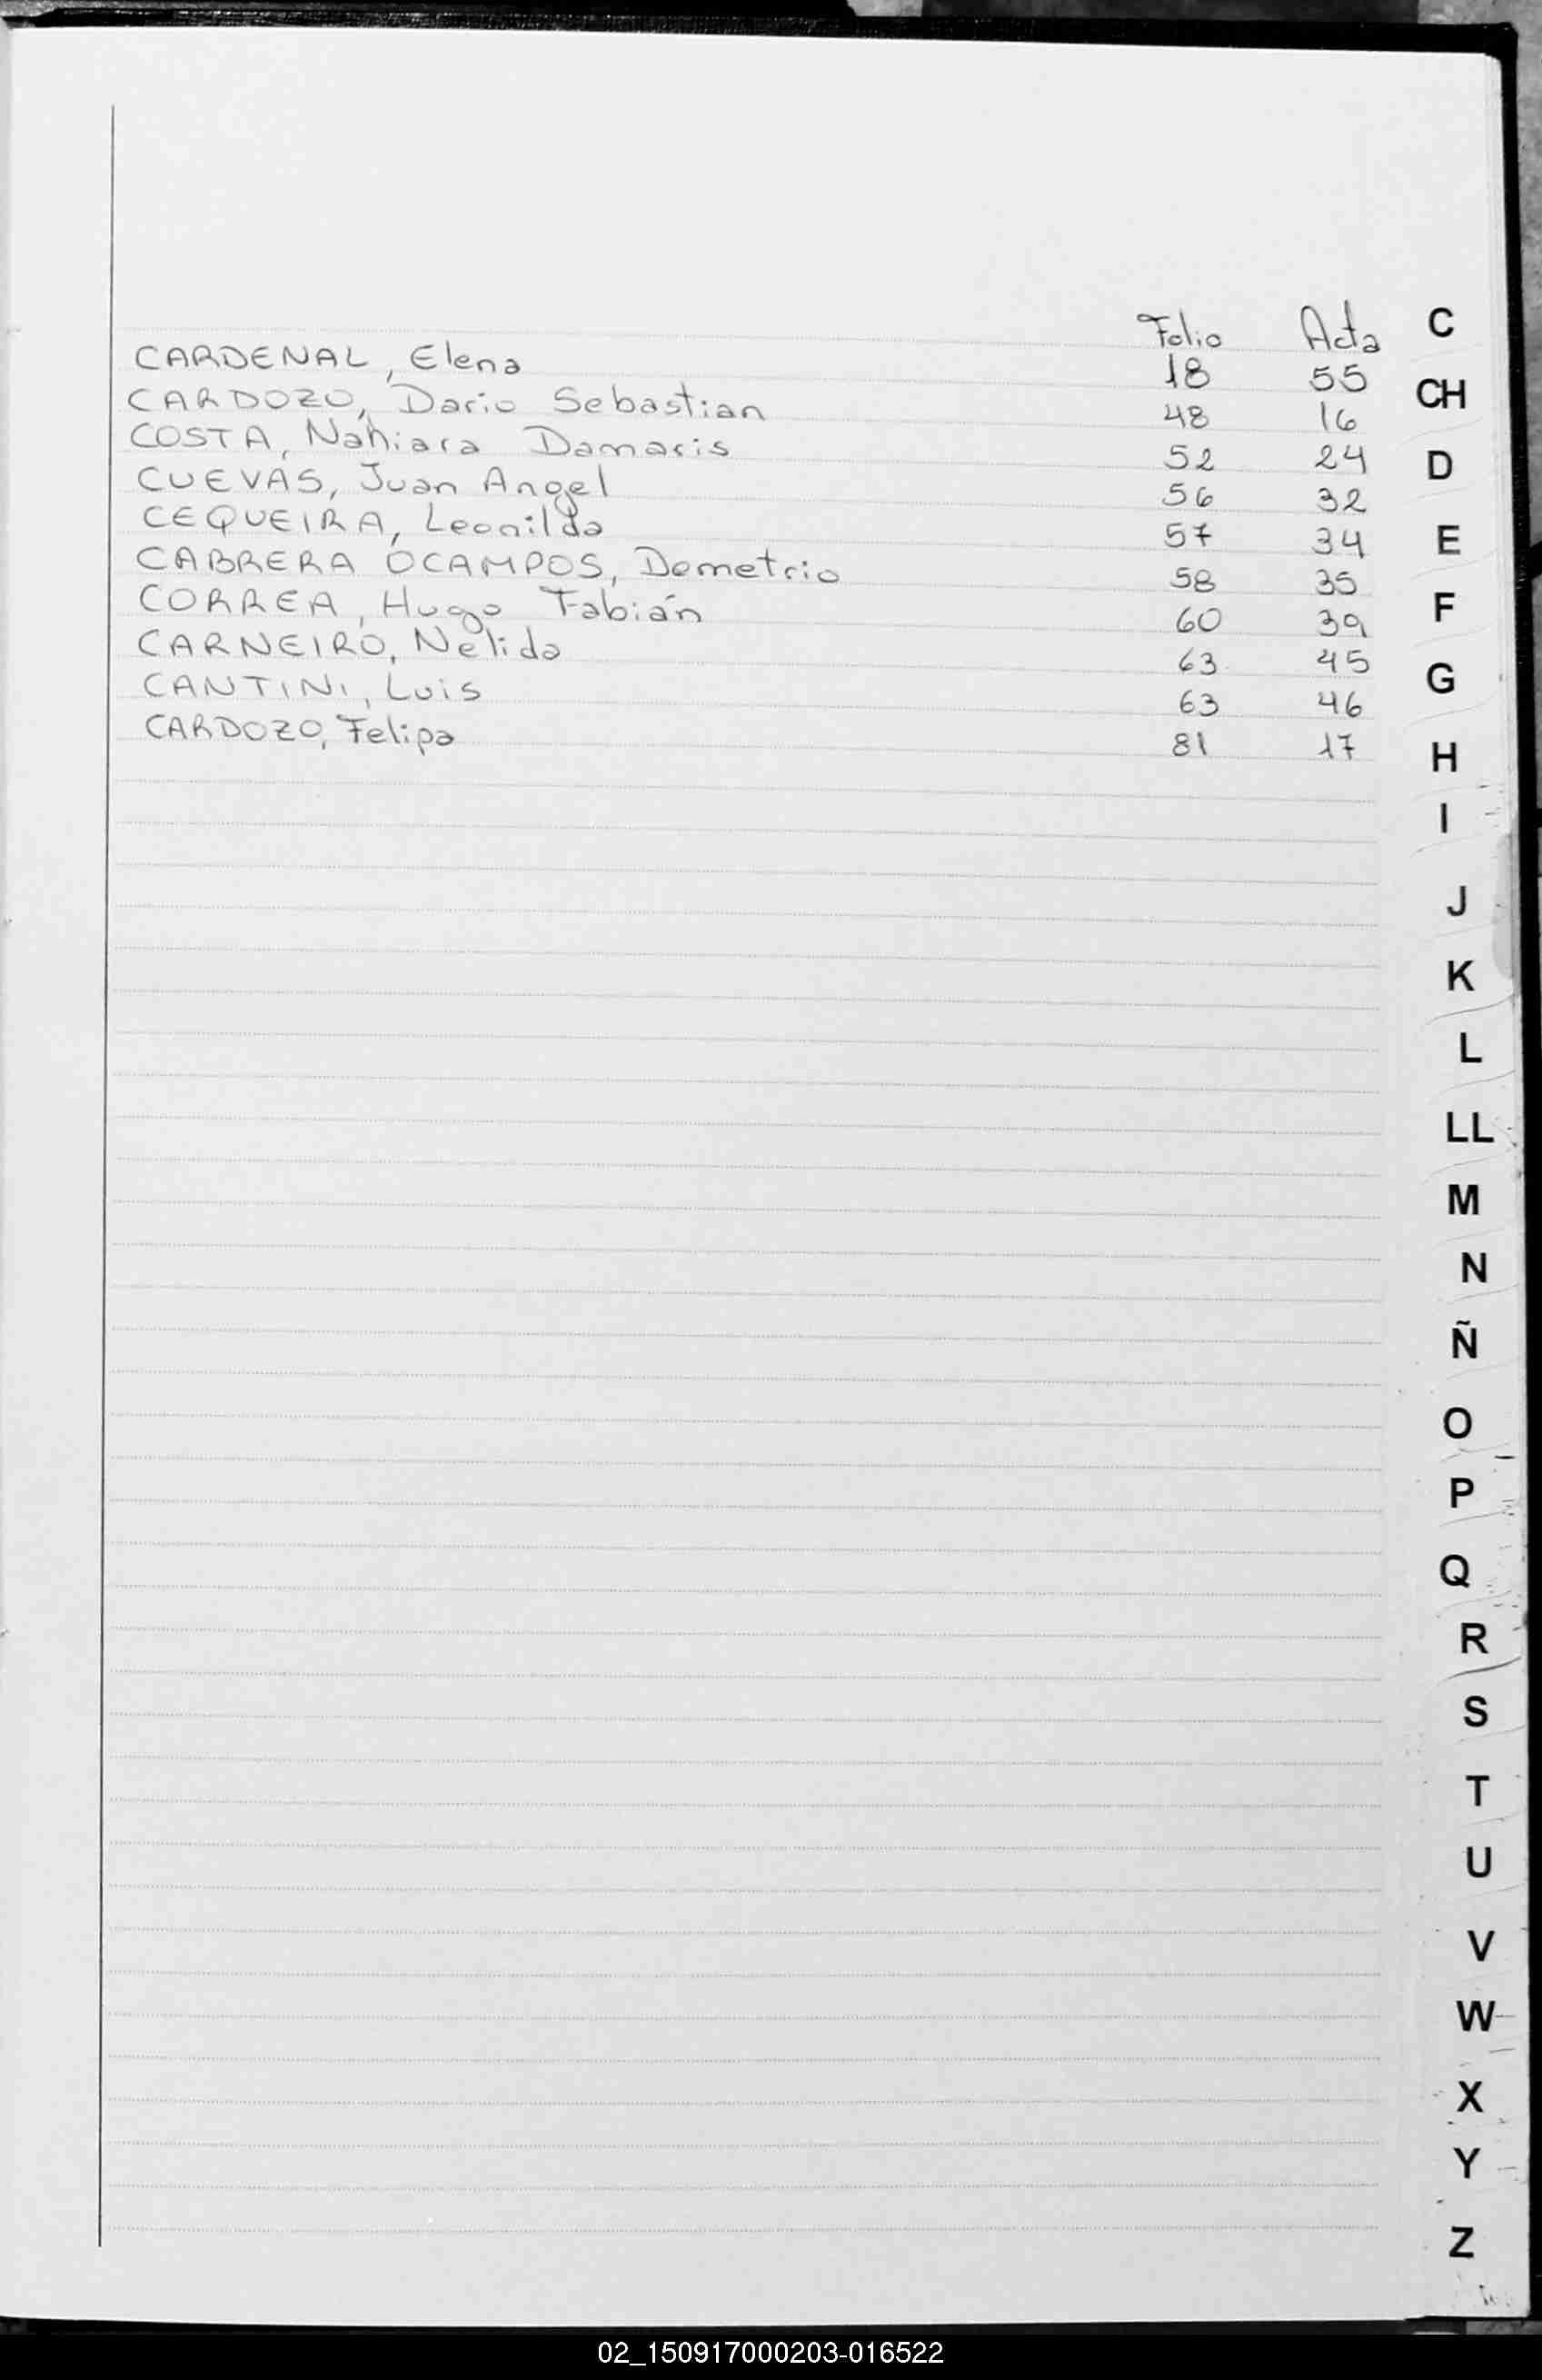 Folio Acta
CARDENAL, Elena 18 55
CARDOZO, Dario Sebastian 48 16
COSTA, Nahiara Damaris 52 24
CUEVAS, Juan Angel 56 32
CEQUEIRA, Leonilda 57 34
CABRERA OCAMPOS, Demetrio 58 35
CORREA, Hugo Fabián 60 39
CARNEIRO, Nélida 63 45
CANTINI, Luis 63 46
CARDOZO, Felipa 81 17
C
CH
D
E
F
G
H
I
J
K
L
LL
M
N
Ñ
O
P
Q
R
S
T
U
V
W
X
Y
Z
02_150917000203-016522